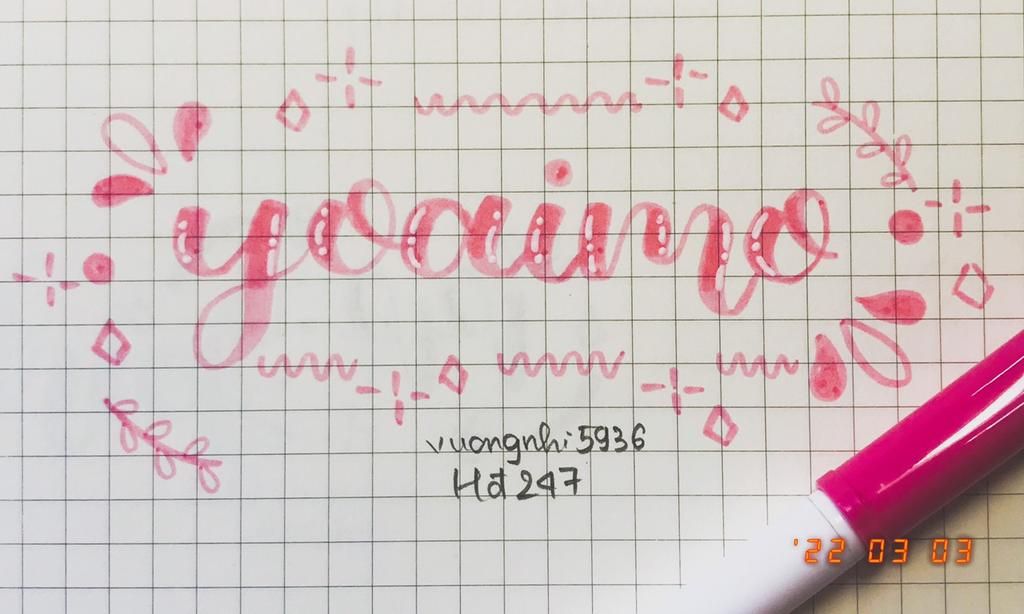 yooino
vuongnhi5936
Hđ 247
'22 03 03